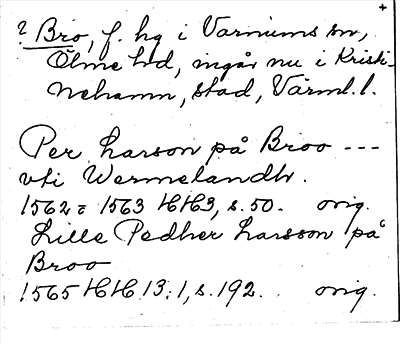 +
? Bro, f. hg i Varnums sn,
Ölme hd, ingår nu i Kristi-
nehamn, stad, Värml. l.
Per Larson på Broo ---
vti Wermelandh.
1562 = 1563 HH3, s. 50. orig.
Lille Pedher Larsson på
Broo
1565 HH 13:1, s. 192. orig.